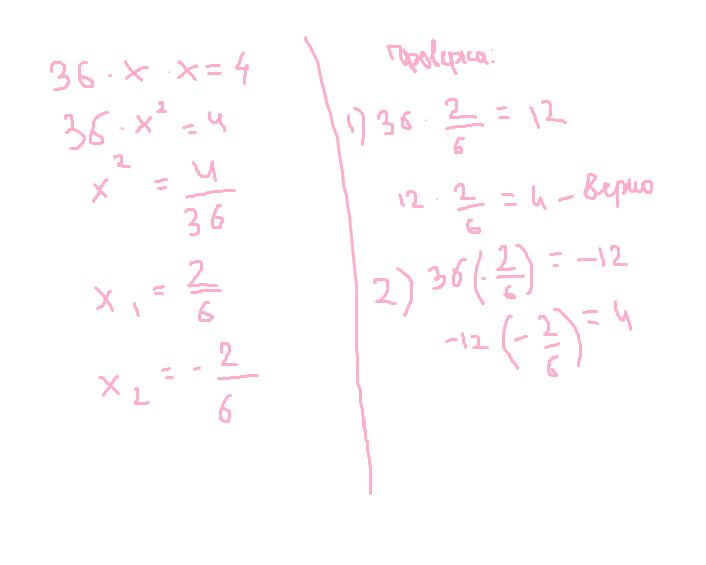 36 · x · x = 4
36 · x² = 4
x² = 4/36
x₁ = 2/6
x₂ = - 2/6
Проверка:
1) 36 · 2/6 = 12
12 · 2/6 = 4 - Верно
2) 36 (- 2/6) = -12
-12 (- 2/6) = 4